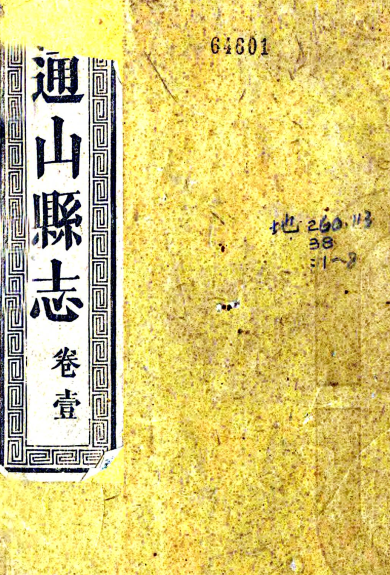 64601
通山縣志
卷壹
地 260.113
38
:1~8